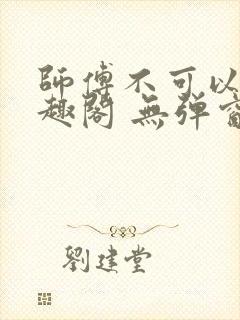 師傅不可以
趣閣 無弹窗
劉建堂